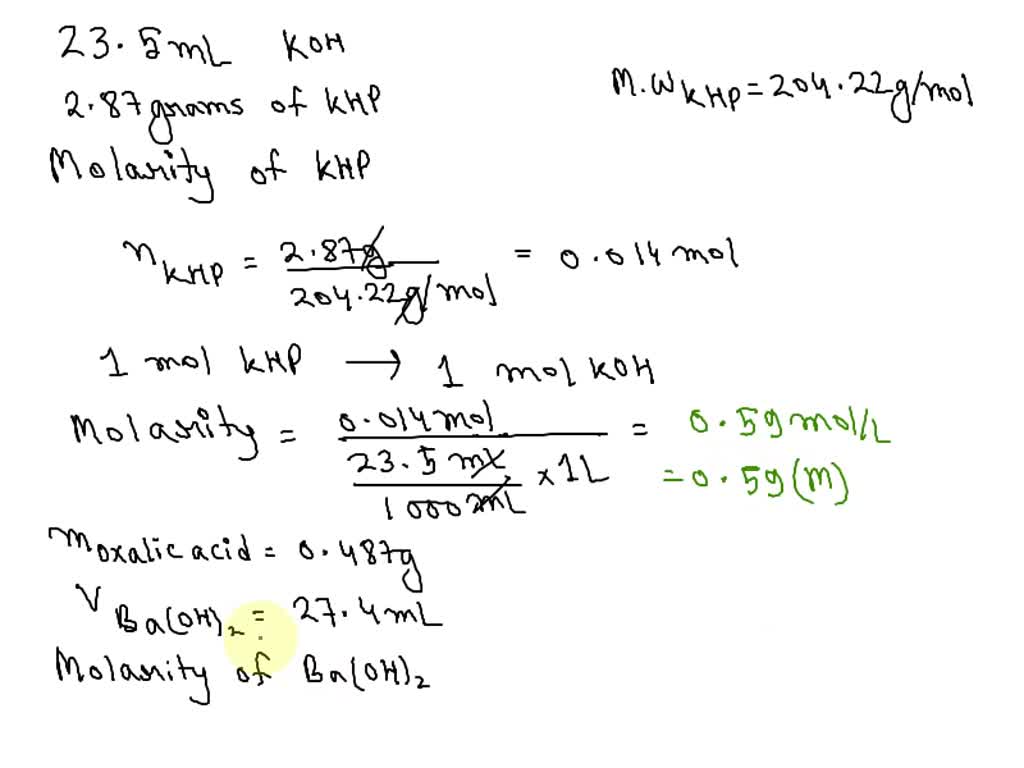 23.5mL KOH
2.87grams of KHP
M.W KHP = 204.22g/mol
Molarity of KHP
n KHP = 2.87g / 204.22g/mol = 0.014 mol
1 mol KHP → 1 mol KOH
Molarity = 0.014mol / 23.5 mL / 1000mL × 1L = 0.59mol/L
= 0.59(M)
m oxalic acid = 0.487g
V Ba(OH)₂ = 27.4mL
Molarity of Ba(OH)₂